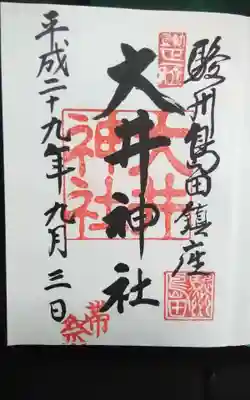 駿州島田鎮座
大井神社
大井神社
平成二十九年九月三日
帯祭
島田